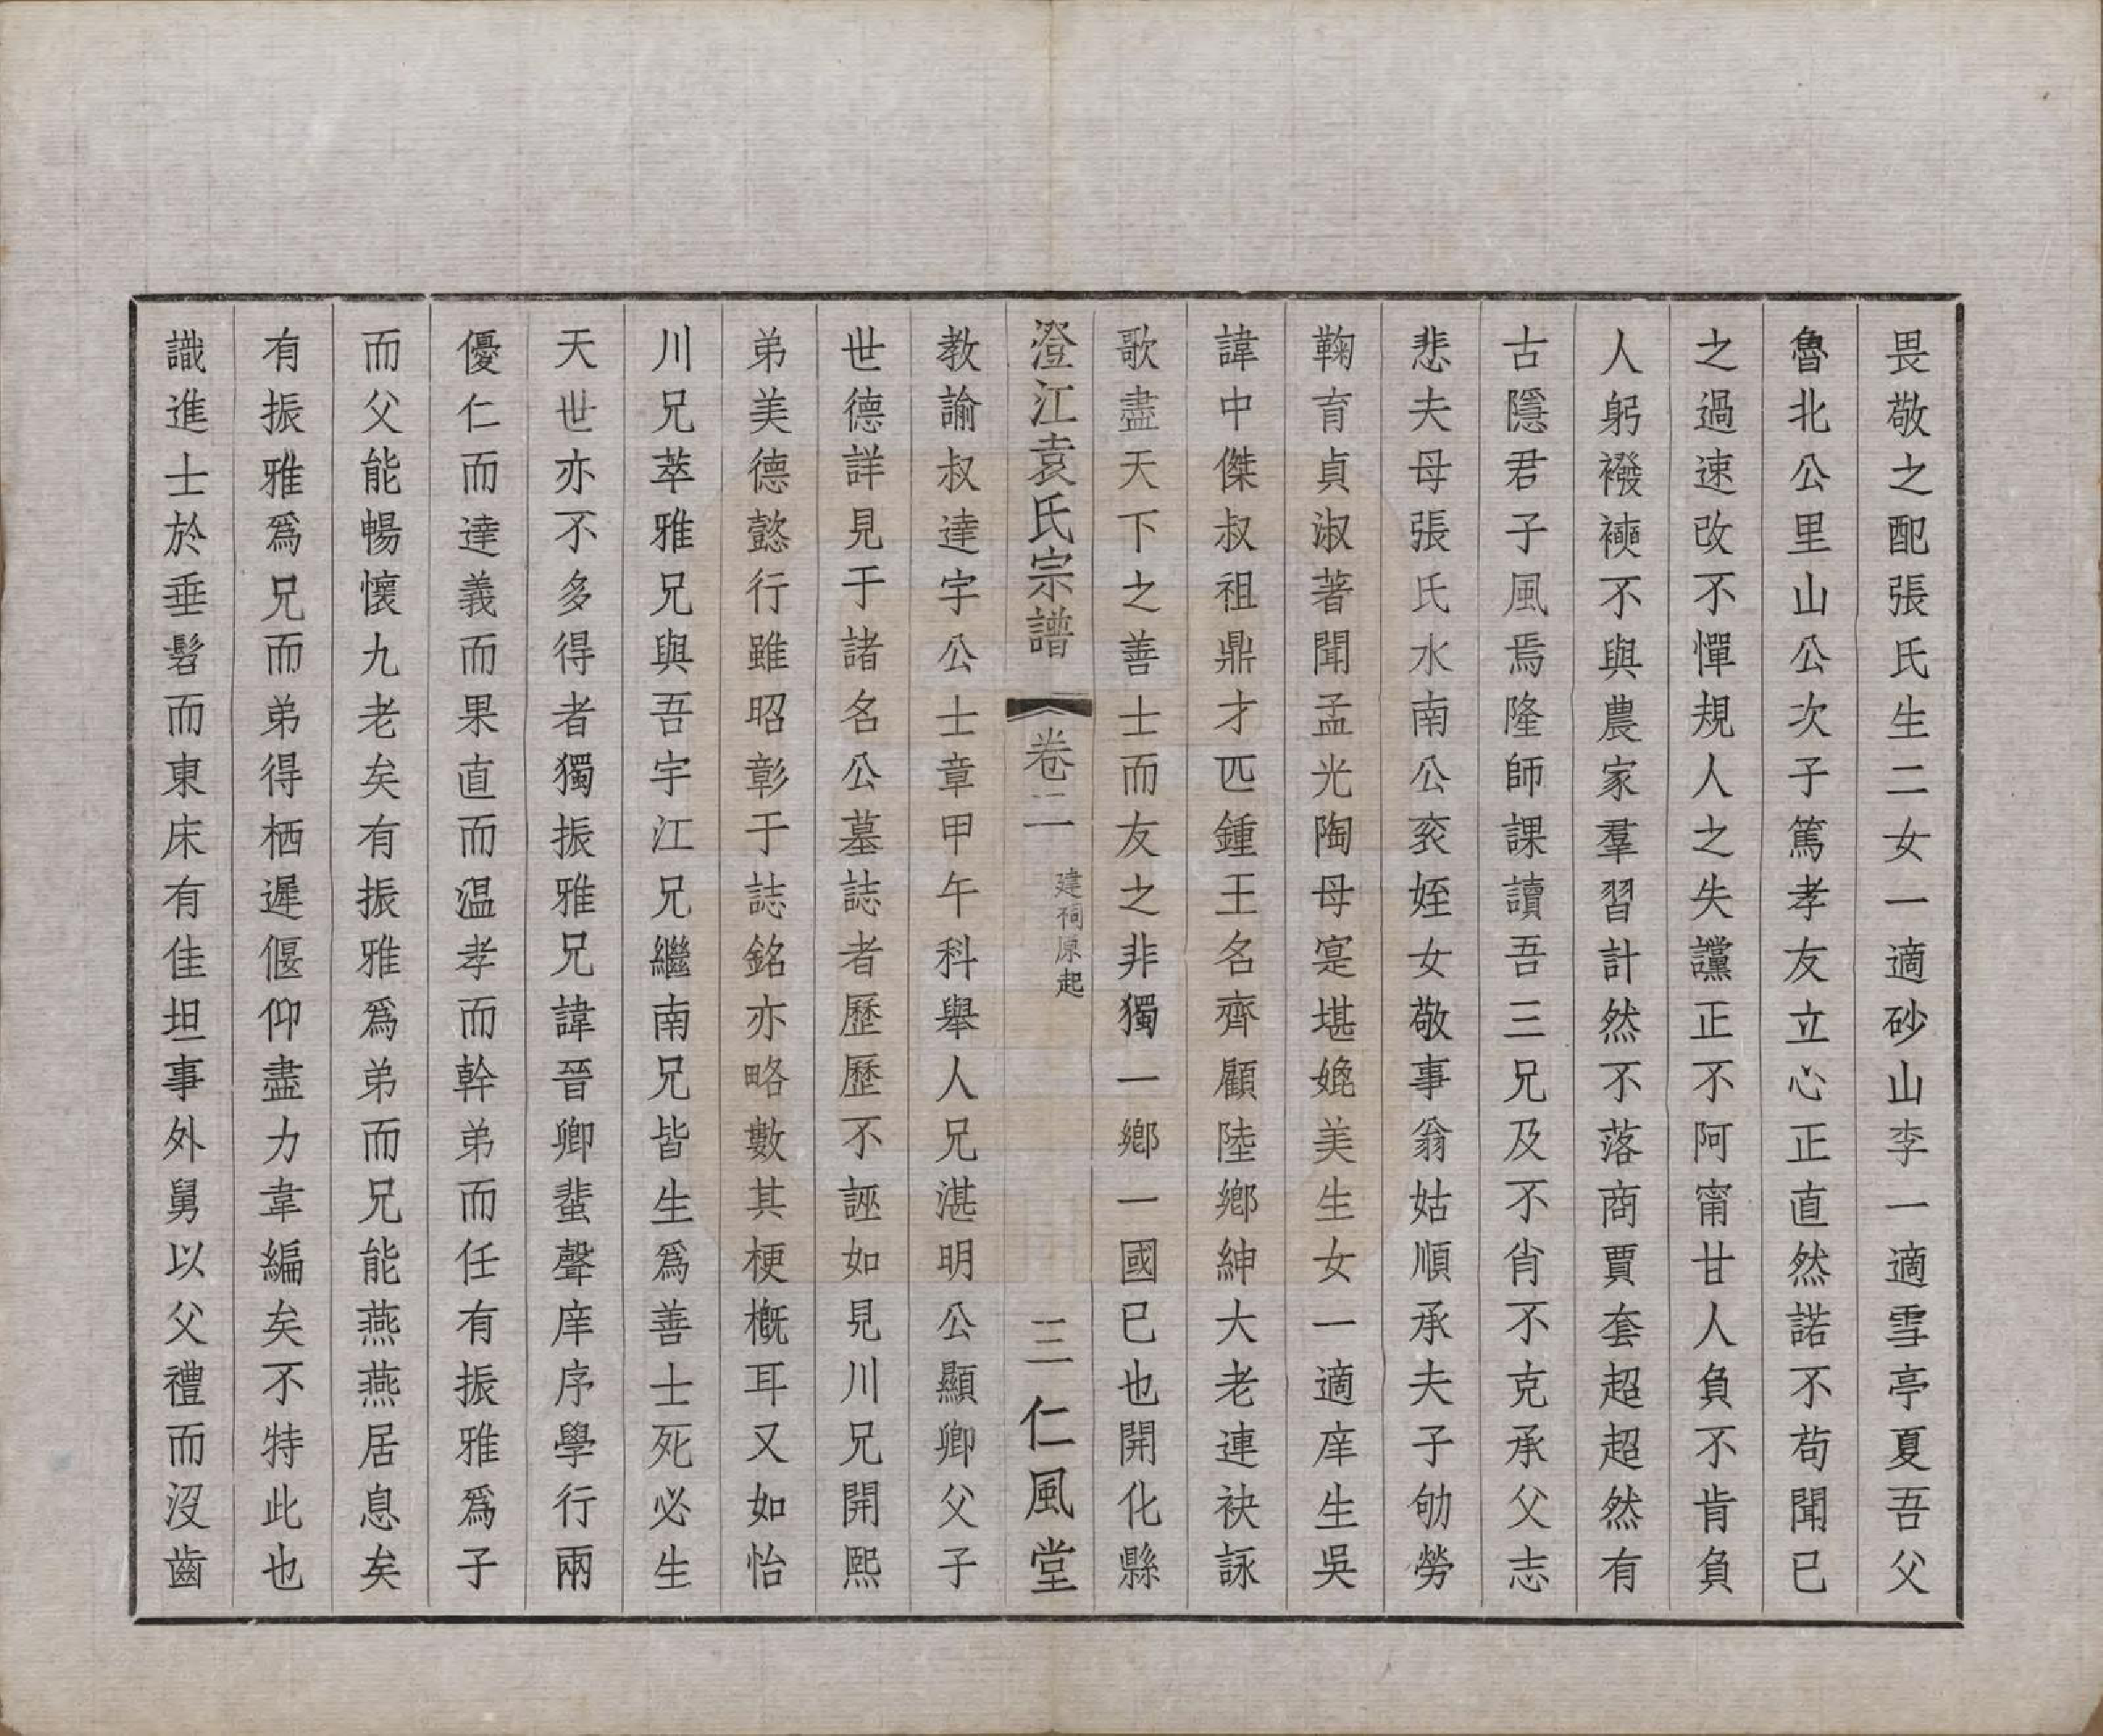 畏敬之配張氏生二女一適砂山李一適雪亭夏吾父
魯北公里山公次子篤孝友立心正直然諾不苟聞已
之過速改不憚規人之失讜正不阿甯甘人負不肯負
人躬襏襫不與農家羣習計然不落商賈套超超然有
古隱君子風焉隆師課讀吾三兄及不肖不克承父志
悲夫母張氏水南公衮姪女敬事翁姑順承夫子劬勞
鞠育貞淑著聞孟光陶母寔堪娩美生女一適庠生吳
諱中傑叔祖鼎才匹鍾王名齊顧陸鄉紳大老連袂詠
歌盡天下之善士而友之非獨一鄉一國已也開化縣
澄江袁氏宗譜 卷二 建祠原起 三 仁風堂
教諭叔達宇公士章甲午科舉人兄湛明公顯卿父子
世德詳見于諸名公墓誌者歷歷不誣如見川兄開熙
弟美德懿行雖昭彰于誌銘亦略數其梗概耳又如怡
川兄萃雅兄與吾宇江兄繼南兄皆生爲善士死必生
天世亦不多得者獨振雅兄諱晉卿蜚聲庠序學行兩
優仁而達義而果直而温孝而幹弟而任有振雅爲子
而父能暢懷九老矣有振雅爲弟而兄能燕燕居息矣
有振雅爲兄而弟得栖遲偃仰盡力韋編矣不特此也
識進士於垂髫而東床有佳坦事外舅以父禮而沒齒